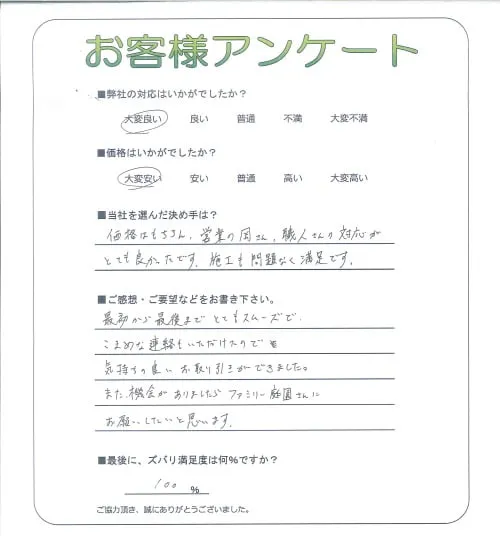 お客様アンケート
■弊社の対応はいかがでしたか？
大変良い 良い 普通 不満 大変不満
■価格はいかがでしたか？
大変安い 安い 普通 高い 大変高い
■当社を選んだ決め手は？
価格はもちろん、営業の岡さん、職人さんの対応が
とても良かったです。施工も問題なく満足です。
■ご感想・ご要望などをお書き下さい。
最初から最後までとてもスムーズで、
こまめな連絡もいただけたので
気持ちの良いお取り引きができました。
また機会がありましたらファミリー庭園さんに
お願いしたいと思います。
■最後に、ズバリ満足度は何%ですか？
100 %
ご協力頂き、誠にありがとうございました。